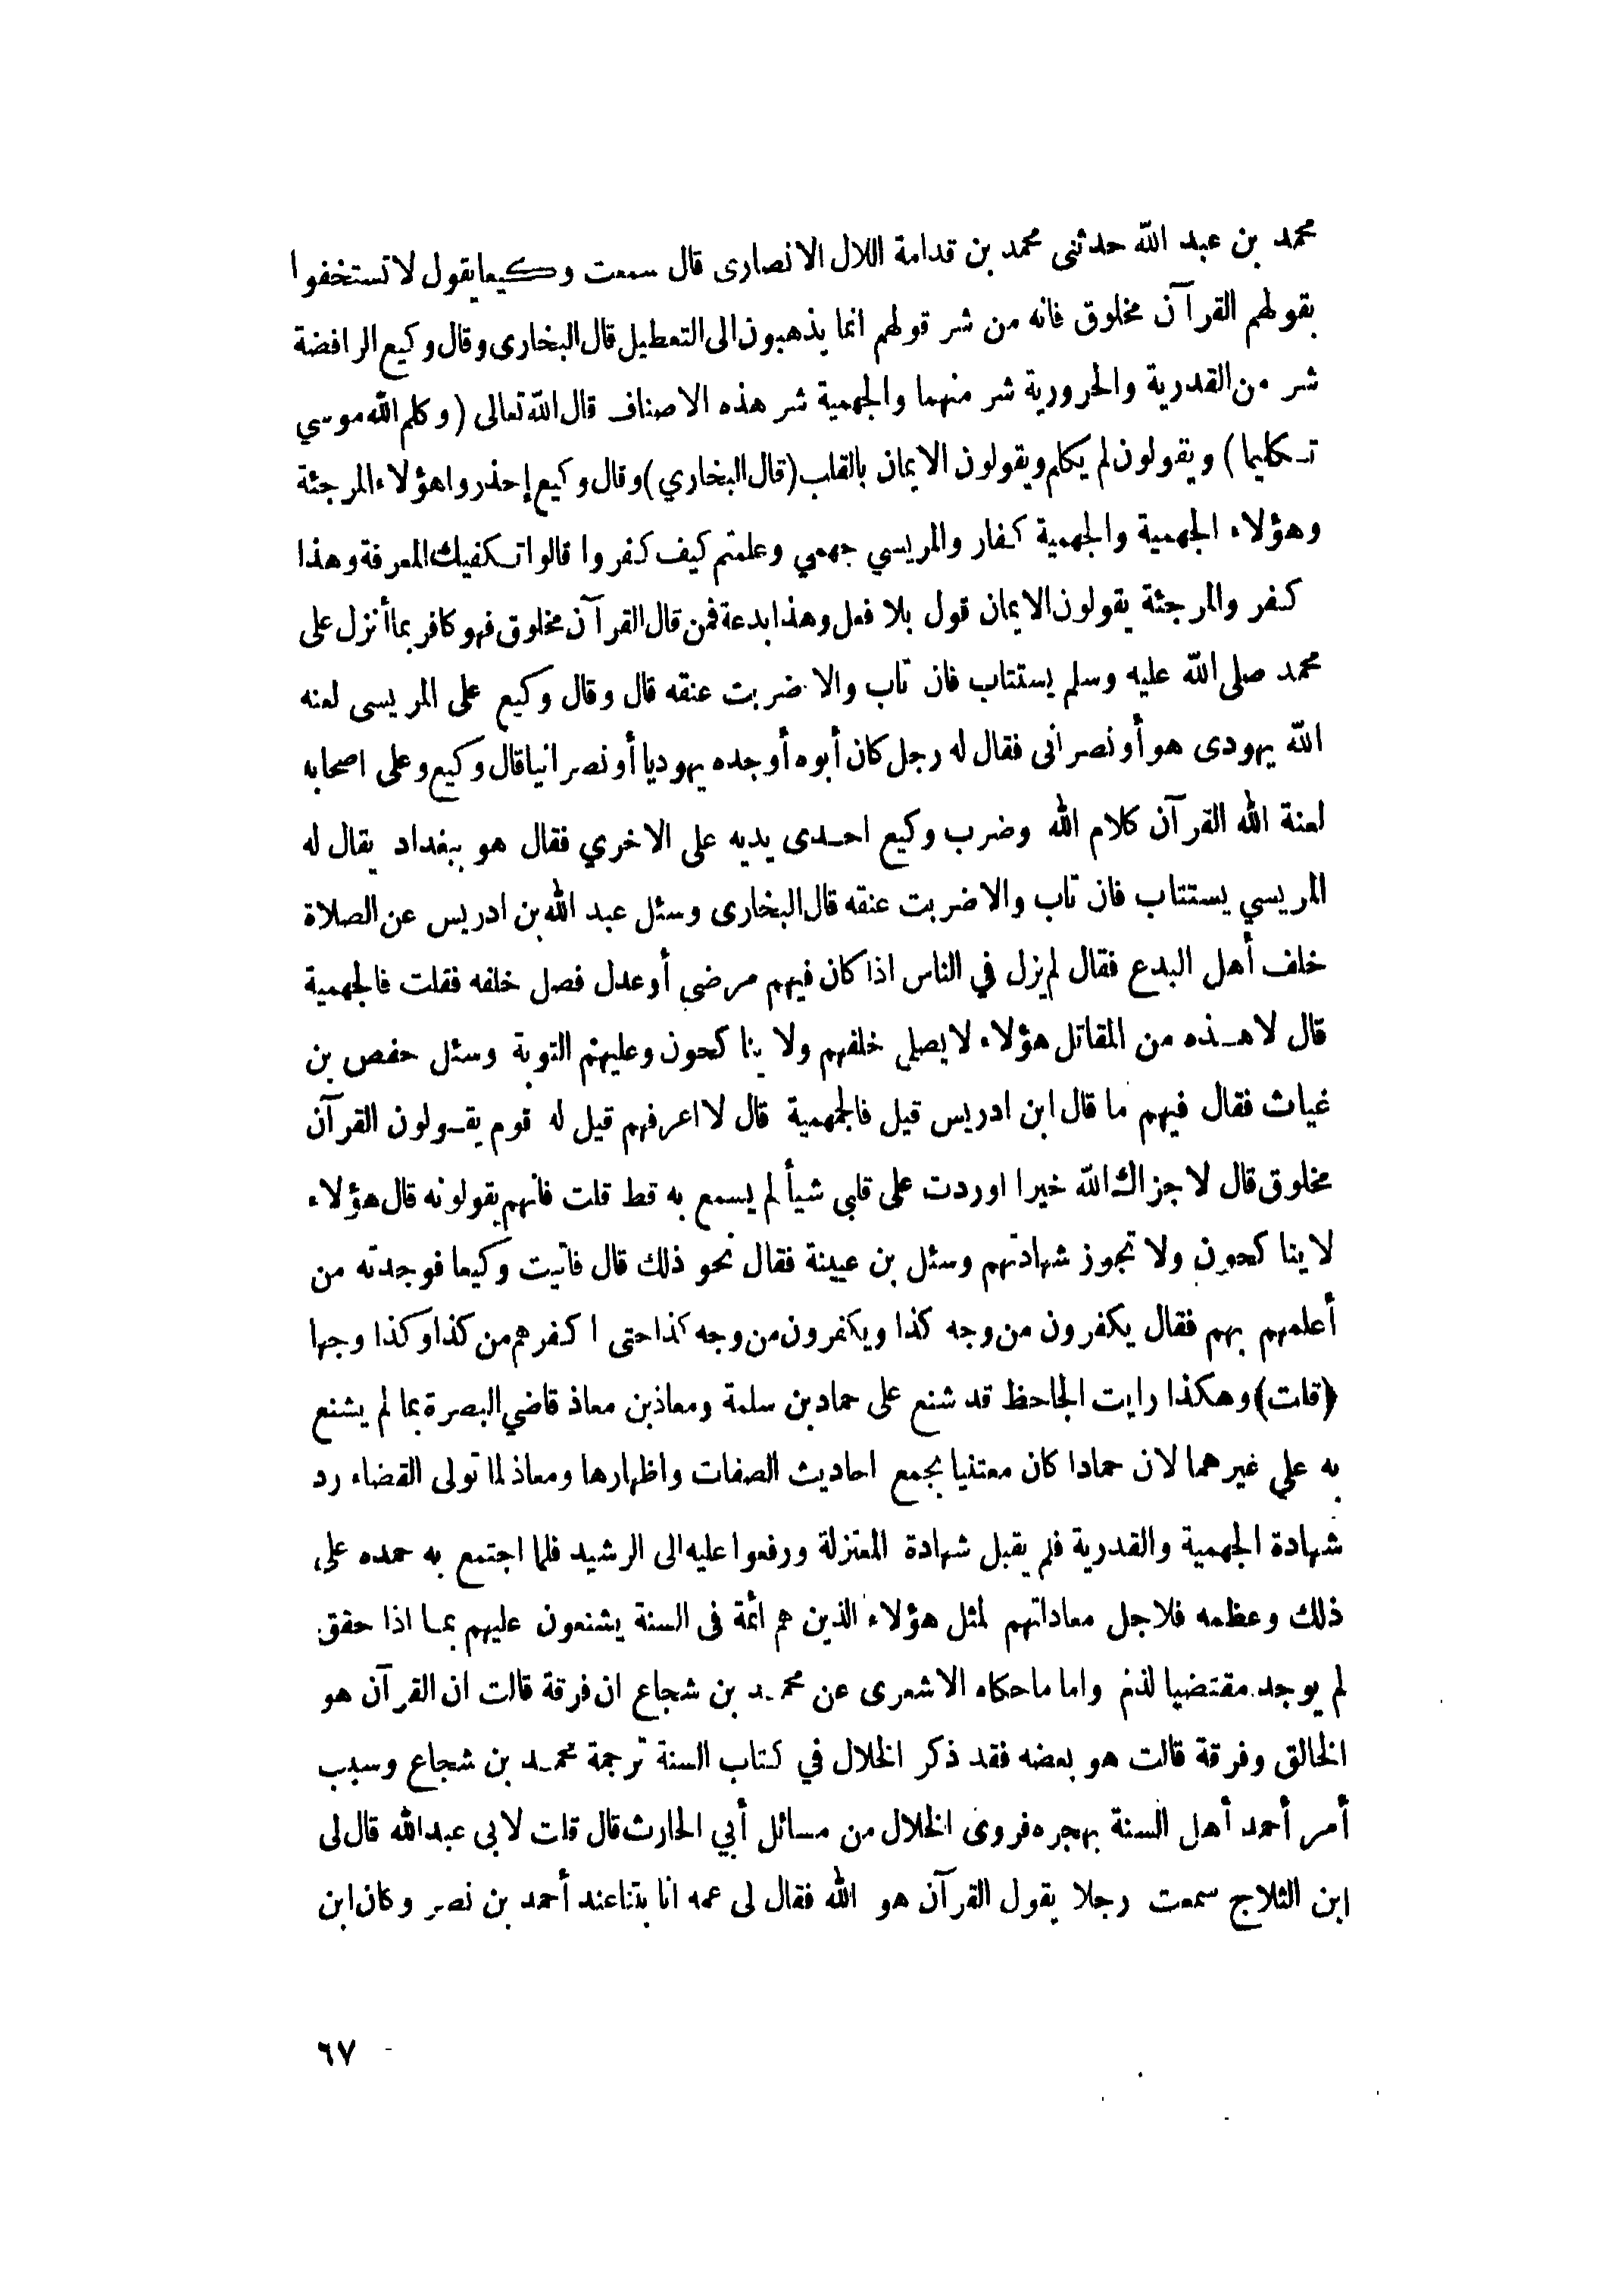 محمد بن عبد الله حدثنى محمد بن قدامة اللال الانصارى قال سمعت وكيعا يقول لا تستخفوا
بقولهم القرآن مخلوق فانه من شر قولهم انما يذهبون الى التعطيل قال البخارى وقال وكيع الرافضة
شر من القدرية والحرورية شر منهما والجهمية شر هذه الاصناف قال الله تعالى (وكلم الله موسي
تكليما) ويقولون لم يكلم ويقولون الايمان بالقلب (قال البخاري) وقال وكيع إحذروا هؤلاء المرجئة
وهؤلاء الجهمية والجهمية كفار والمريسي جهمي وعلمتم كيف كفروا قالوا تكفيك المعرفة وهذا
كفر والمرجئة يقولون الايمان قول بلا فعل وهذا بدعة فمن قال القرآن مخلوق فهو كافر بما أنزل على
محمد صلى الله عليه وسلم يستتاب فان تاب والا ضربت عنقه قال وقال وكيع على المريسى لعنه
الله يهودى هو أو نصرانى فقال له رجل كان أبوه أو جده يهوديا أو نصرانيا قال وكيع وعلى اصحابه
لعنة الله القرآن كلام الله وضرب وكيع احدى يديه على الاخري فقال هو ببغداد يقال له
المريسي يستتاب فان تاب والا ضربت عنقه قال البخارى وسئل عبد الله بن ادريس عن الصلاة
خلف أهل البدع فقال لم يزل في الناس اذا كان فيهم مرضي أو عدل فصل خلفه فقلت فالجهمية
قال لا هذه من المقاتل هؤلاء لا يصلى خلفهم ولا يناكحون وعليهم التوبة وسئل حفص بن
غياث فقال فيهم ما قال ابن ادريس قيل فالجهمية قال لا اعرفهم قيل له قوم يقولون القرآن
مخلوق قال لا جزاك الله خيرا اوردت على قلبى شيأ لم يسمع به قط قلت فانهم يقولونه قال هؤلاء
لا يناكحون ولا تجوز شهادتهم وسئل بن عيينة فقال نحو ذلك قال فاتيت وكيعا فوجدته من
أعلمهم بهم فقال يكفرون من وجه كذا ويكفرون من وجه كذا حتى اكفرهم من كذا وكذا وجها
(قلت) وهكذا رايت الجاحظ قد شنع على حماد بن سلمة ومعاذ بن معاذ قاضي البصرة بما لم يشنع
به علي غيرهما لان حمادا كان معتنيا بجمع احاديث الصفات واظهارها ومعاذ لما تولى القضاء رد
شهادة الجهمية والقدرية فلم يقبل شهادة المعتزلة ورفعوا عليه الى الرشيد فلما اجتمع به حمده على
ذلك وعظمه فلاجل معاداتهم لمثل هؤلاء الذين هم ائمة فى السنة يشنعون عليهم بما اذا حقق
لم يوجد مقتضيا لذم واما ما حكاه الاشعرى عن محمد بن شجاع ان فرقة قالت ان القرآن هو
الخالق وفرقة قالت هو بعضه فقد ذكر الخلال في كتاب السنة ترجمة محمد بن شجاع وسبب
أمر أحمد أهل السنة بهجره فروى الخلال من مسائل أبي الحارث قال قلت لابى عبد الله قال لى
ابن الثلاج سمعت رجلا يقول القرآن هو الله فقال لى عمه انا بتنا عند أحمد بن نصر وكان ابن
٦٧